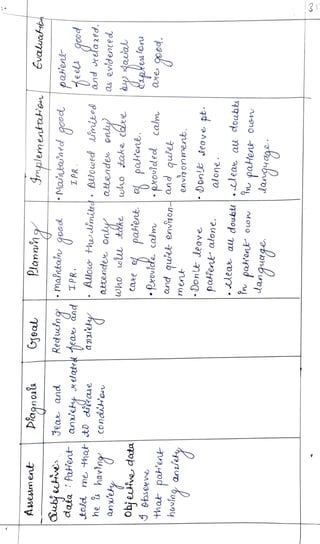 3
Assessment
Subjective
data : Patient
told me that
he is having
anxiety
Objective data
I observe
that patient
having anxiety
Diagnosis
Fear and
anxiety related
to disease
condition
Goal
Reducing
fear and
anxiety
Planning
• maintain good
I.P.R.
• Allow the limited
attender only
who will take
care of patient.
• Provide calm
and quite environ-
ment
• Don't leave
patient alone.
• clear all doubts
in patient own
language
Implementation
• Maintained good
I.P.R.
• Allowed limited
attender only
who take care
of patient.
• provided calm
and quiet
environment.
• Don't leave pt.
alone.
• clear all doubts
in patient own
language.
Evaluation
patient
feels good
and relaxed.
as evidenced
by facial
expressions
are good.